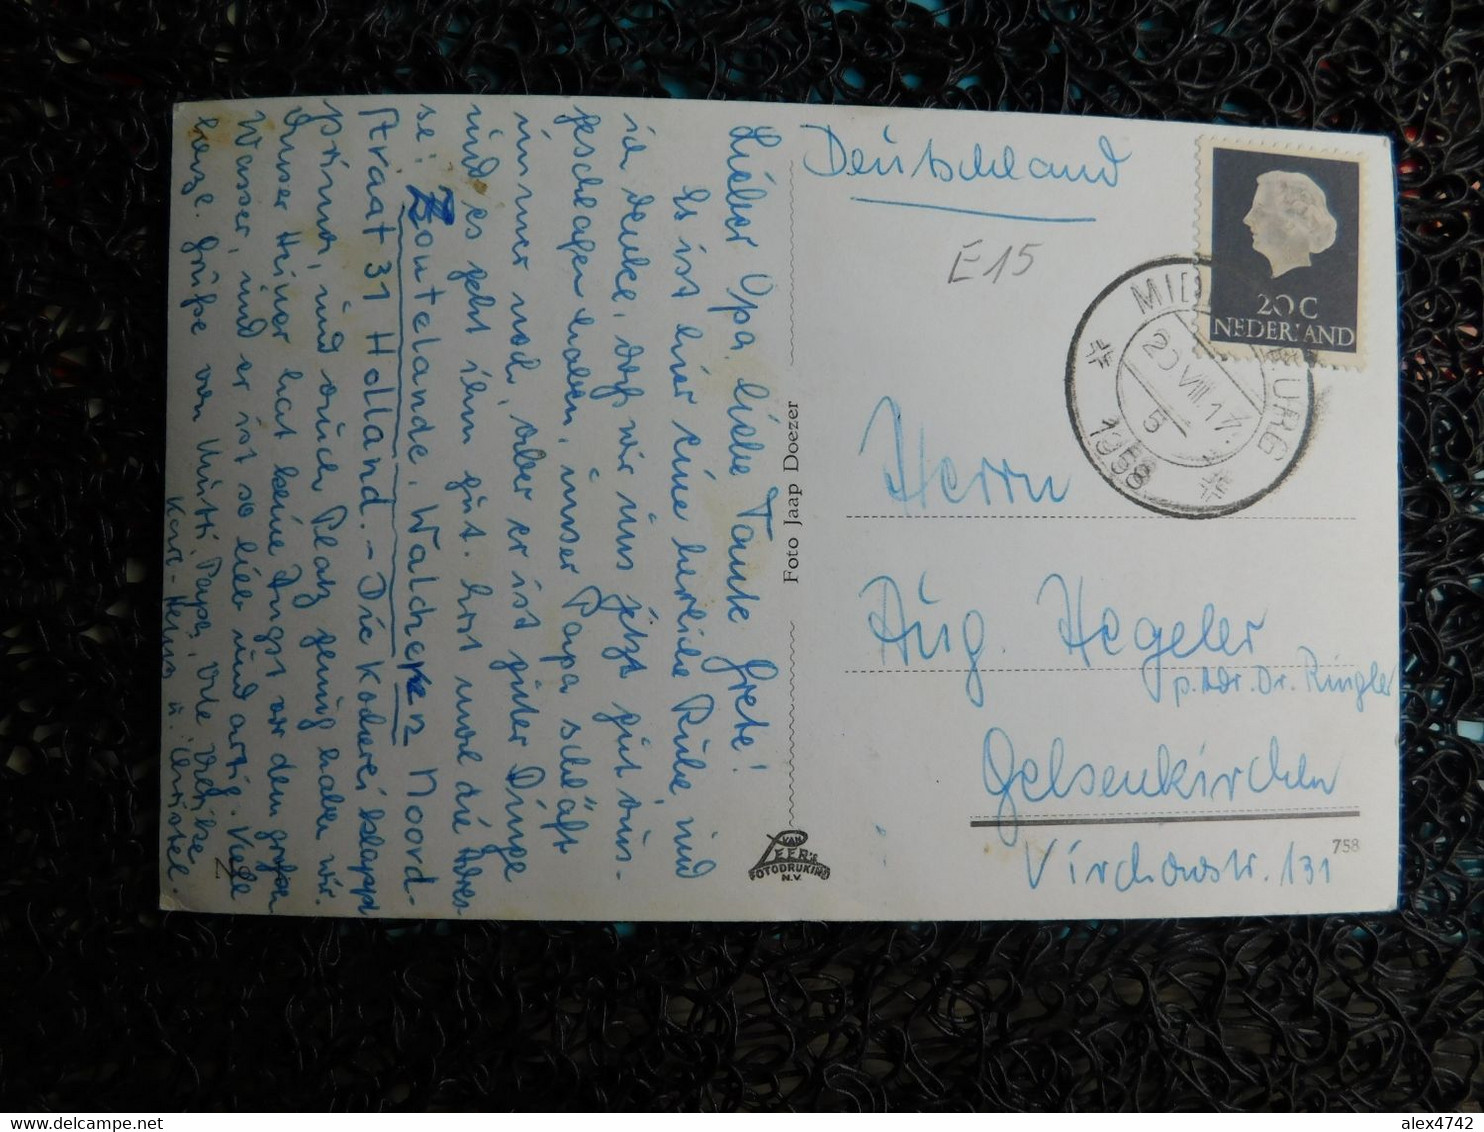 Lieber Opa, liebe Tante Grete!
Es ist hier eine herrliche Ruhe, und
ich denke, daß wir uns jetzt gut aus-
geschlagen haben, unser Papa schläft
immer noch, aber er ist guter Dinge
und es geht ihm gut. hier mal die Adres-
se: Zoutelande, Walcheren Noord-
straat 31 Holland. - Die Kocherei klappt
prima, und auch Platz genug haben wir.
Unser Heiner hat keine Angst vor dem großen
Wasser, und er ist so lieb und artig. Viele
Grüße von Mutti, Papa,
Karl-Heinz u. Christel.
2
Foto Jaap Doezer
VAN
LEER'S
FOTODRUKIND
N.V.
Deutschland
E15
20C
NEDERLAND
20 VIII 17
5
1958
Herrn
Aug. Hegeler
p. Adr. Dr. Ringler
Gelsenkirchen
758
Virchowstr. 131
alex4742